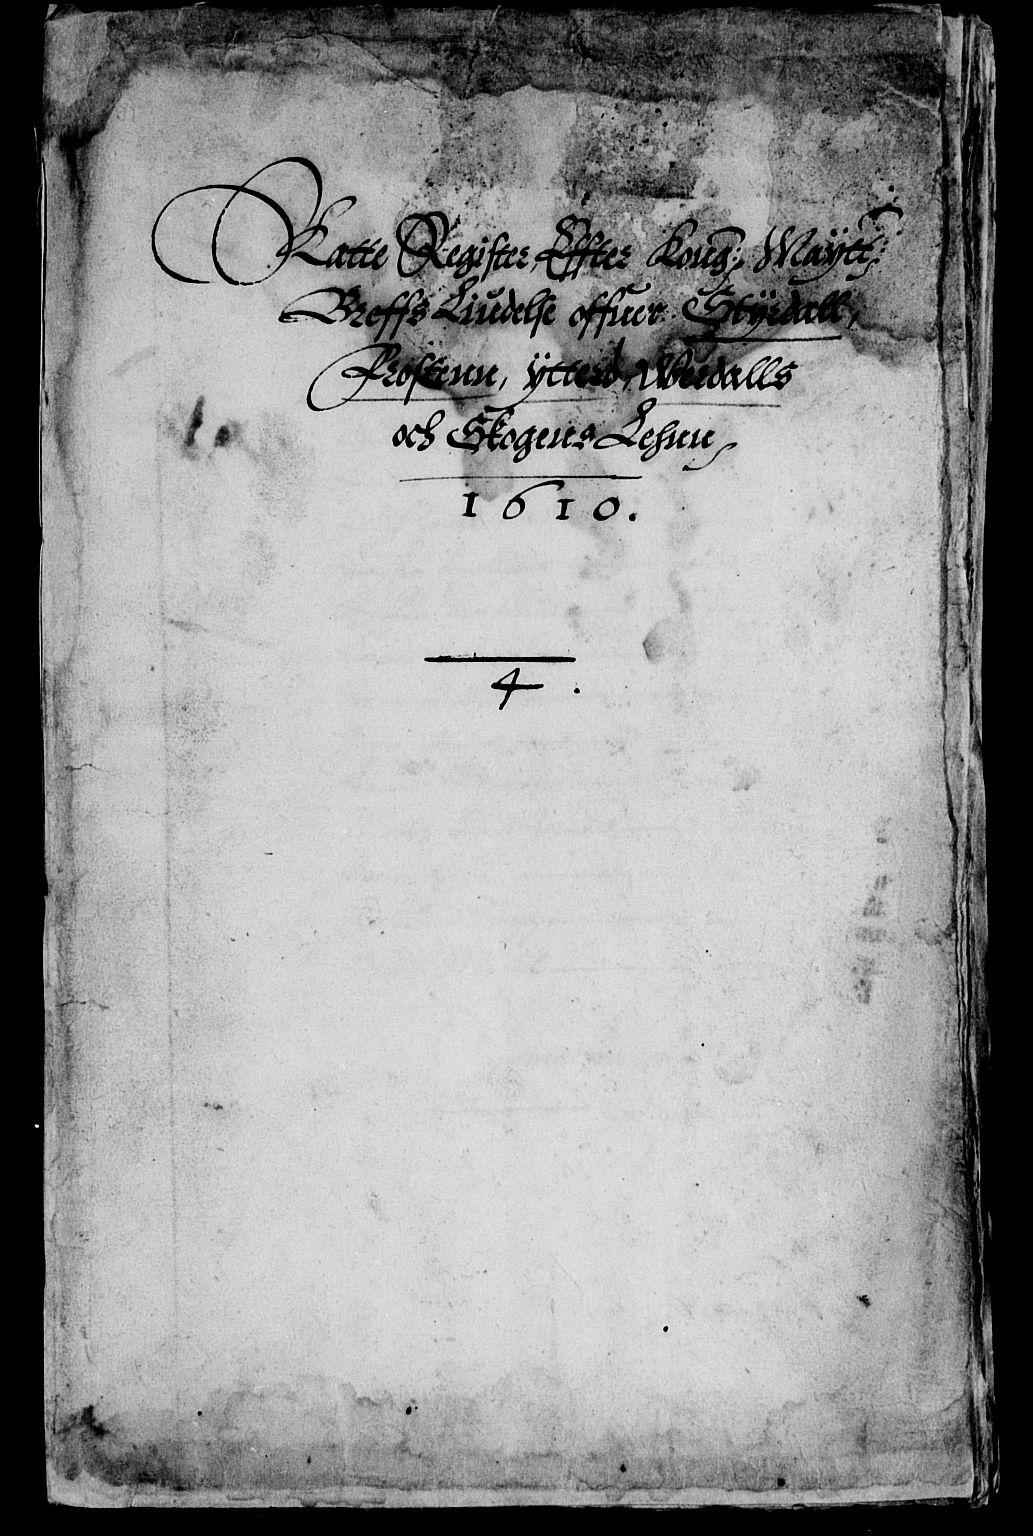 Skatte Register, Effter Kong: Maÿtt:
Breffs Liudelse offuer Styrdall,
Frostenn, ÿtterø, Werdalls
och Skogens Lehnn,
1610.
4.